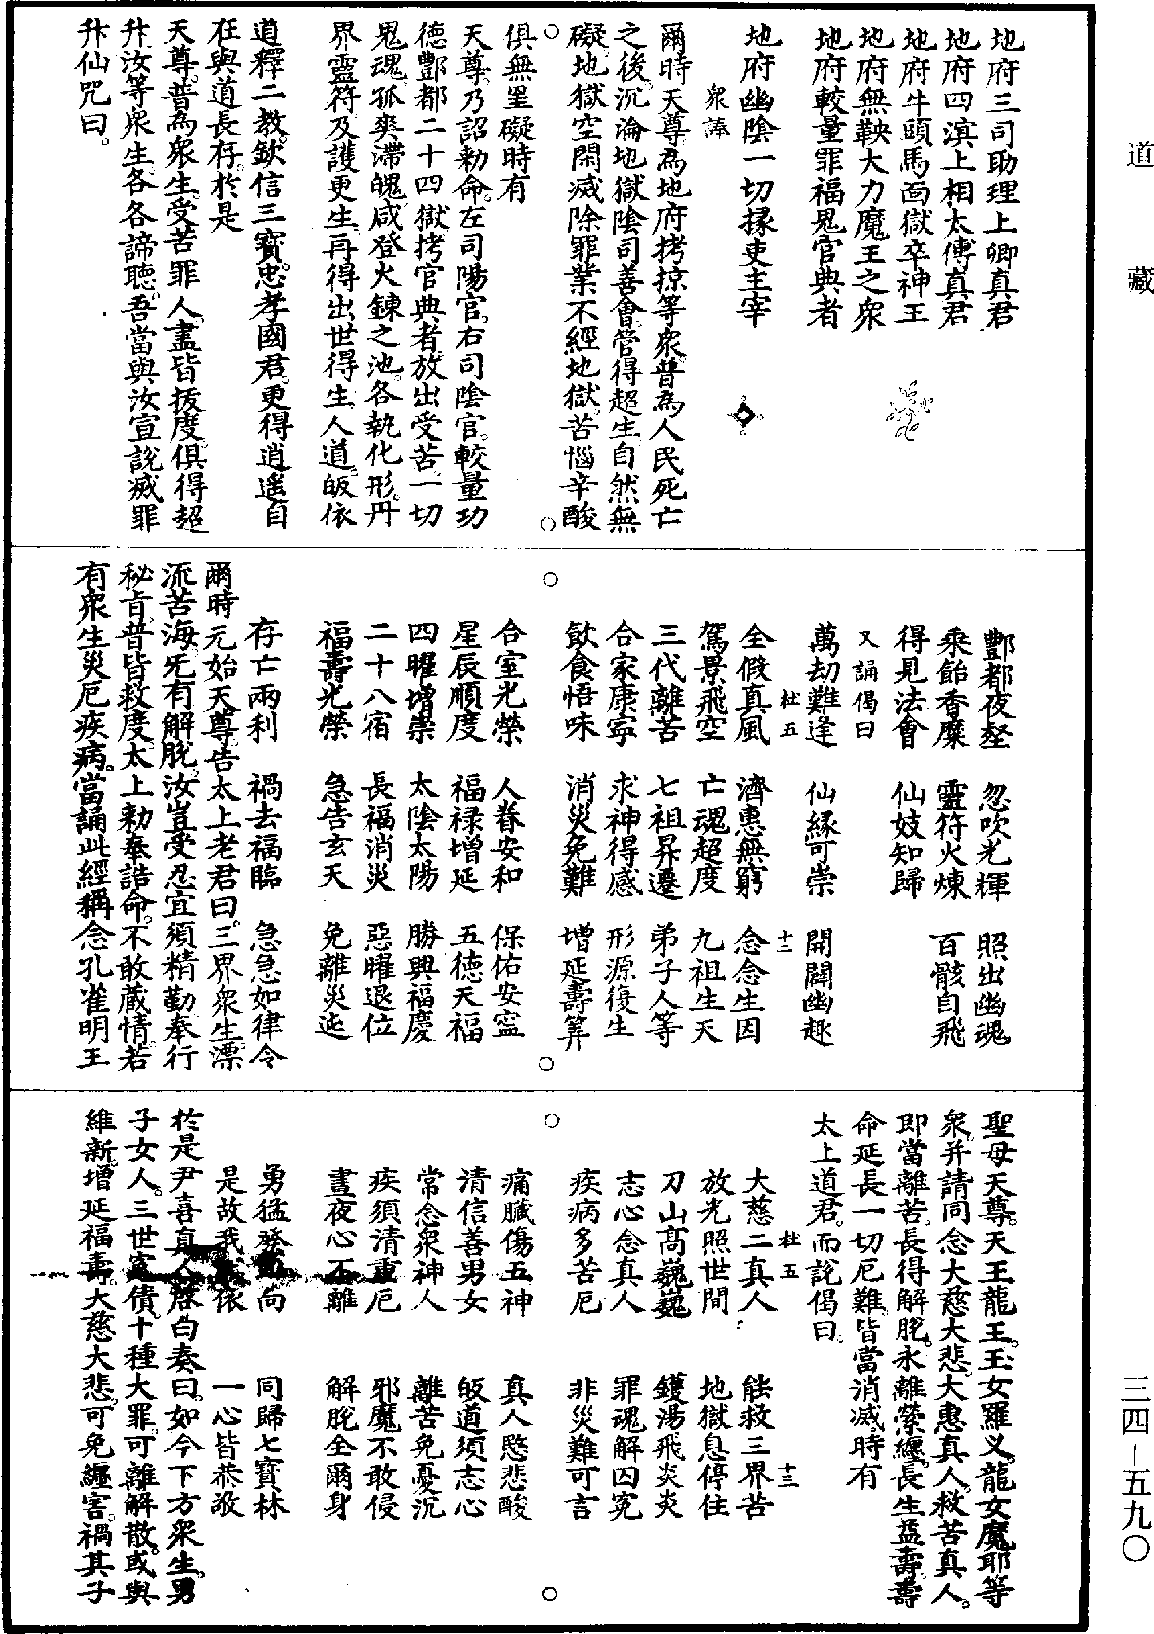 道藏
三四—五九〇
地府三司助理上卿真君
地府四溟上相太傅真君
地府牛頭馬面獄卒神王
地府無鞅大力魔王之衆
地府較量罪福鬼官典者
地府幽陰一切掾吏主宰
衆誦
爾時天尊爲地府拷掠等衆普爲人民死亡
之後沉淪地獄陰司善會管得超生自然無
礙地獄空閑滅除罪業不經地獄苦惱辛酸
俱無罣礙時有
天尊乃詔勅命左司陽官右司陰官較量功
德酆都二十四獄拷官典者放出受苦一切
鬼魂孤爽滯魄咸登火鍊之池各執化形丹
界靈符及護更生再得出世得生人道皈依
道釋二教欽信三寶忠孝國君更得逍遥自
在與道長存於是
天尊普爲衆生受苦罪人盡皆拔度俱得超
升汝等衆生各各諦聽吾當與汝宣說滅罪
升仙咒曰
酆都夜壑 忽吹光輝 照出幽魂
乘飴香糜 靈符火煉 百骸自飛
得見法會 仙妓知歸
又誦偈曰
萬劫難逢 仙緣可崇 開闢幽趣
杜五 十二
全假真風 濟惠無窮 念念生因
駕景飛空 亡魂超度 九祖生天
三代離苦 七祖昇遷 弟子人等
合家康寧 求神得感 形源復生
飲食悟味 消災免難 增延壽筭
合室光榮 人眷安和 保佑安寍
星辰順度 福禄增延 五德天福
四曜增崇 太陰太陽 勝興福慶
二十八宿 長福消災 惡曜退位
福壽光榮 急告玄天 免離災迍
存亡兩利 禍去福臨 急急如律令
爾時元始天尊告太上老君曰三界衆生漂
流苦海旡有解脫汝豈受忍宜須精勤奉行
秘旨普皆救度太上勅奉誥命不敢蔵情若
有衆生災厄疾病當誦此經稱念孔雀明王
聖母天尊天王龍王玉女羅义龍女魔耶等
衆并請同念大慈大悲大惠真人救苦真人
即當離苦長得解脫永離縈纏長生益壽壽
命延長一切厄難皆當消滅時有
太上道君而說偈曰
杜五 十三
大慈二真人 能救三界苦
放光照世間 地獄息停住
刀山高巍巍 鑊湯飛炎炎
志心念真人 罪魂解囚冤
疾病多苦厄 非災難可言
痛臟傷五神 真人愍悲酸
清信善男女 皈道須志心
常念衆神人 離苦免憂沉
疾須清重厄 邪魔不敢侵
晝夜心不離 解脫全爾身
勇猛發向 同歸七寶林
是故我依 一心皆恭敬
於是尹喜真人啓白奏曰如今下方衆生男
子女人三世寃債十種大罪可離解散或與
維新增延福壽大慈大悲可免纏害禍其子